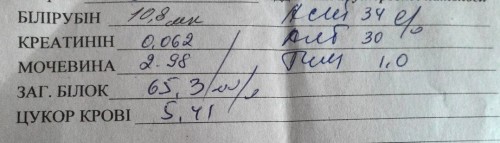 БІЛІРУБІН 10,8 мк АСАТ 34 е/л
КРЕАТИНІН 0,062 АЛТ 30
МОЧЕВИНА 2.98 1,0
ЗАГ. БІЛОК 65,3
ЦУКОР КРОВІ 5,41